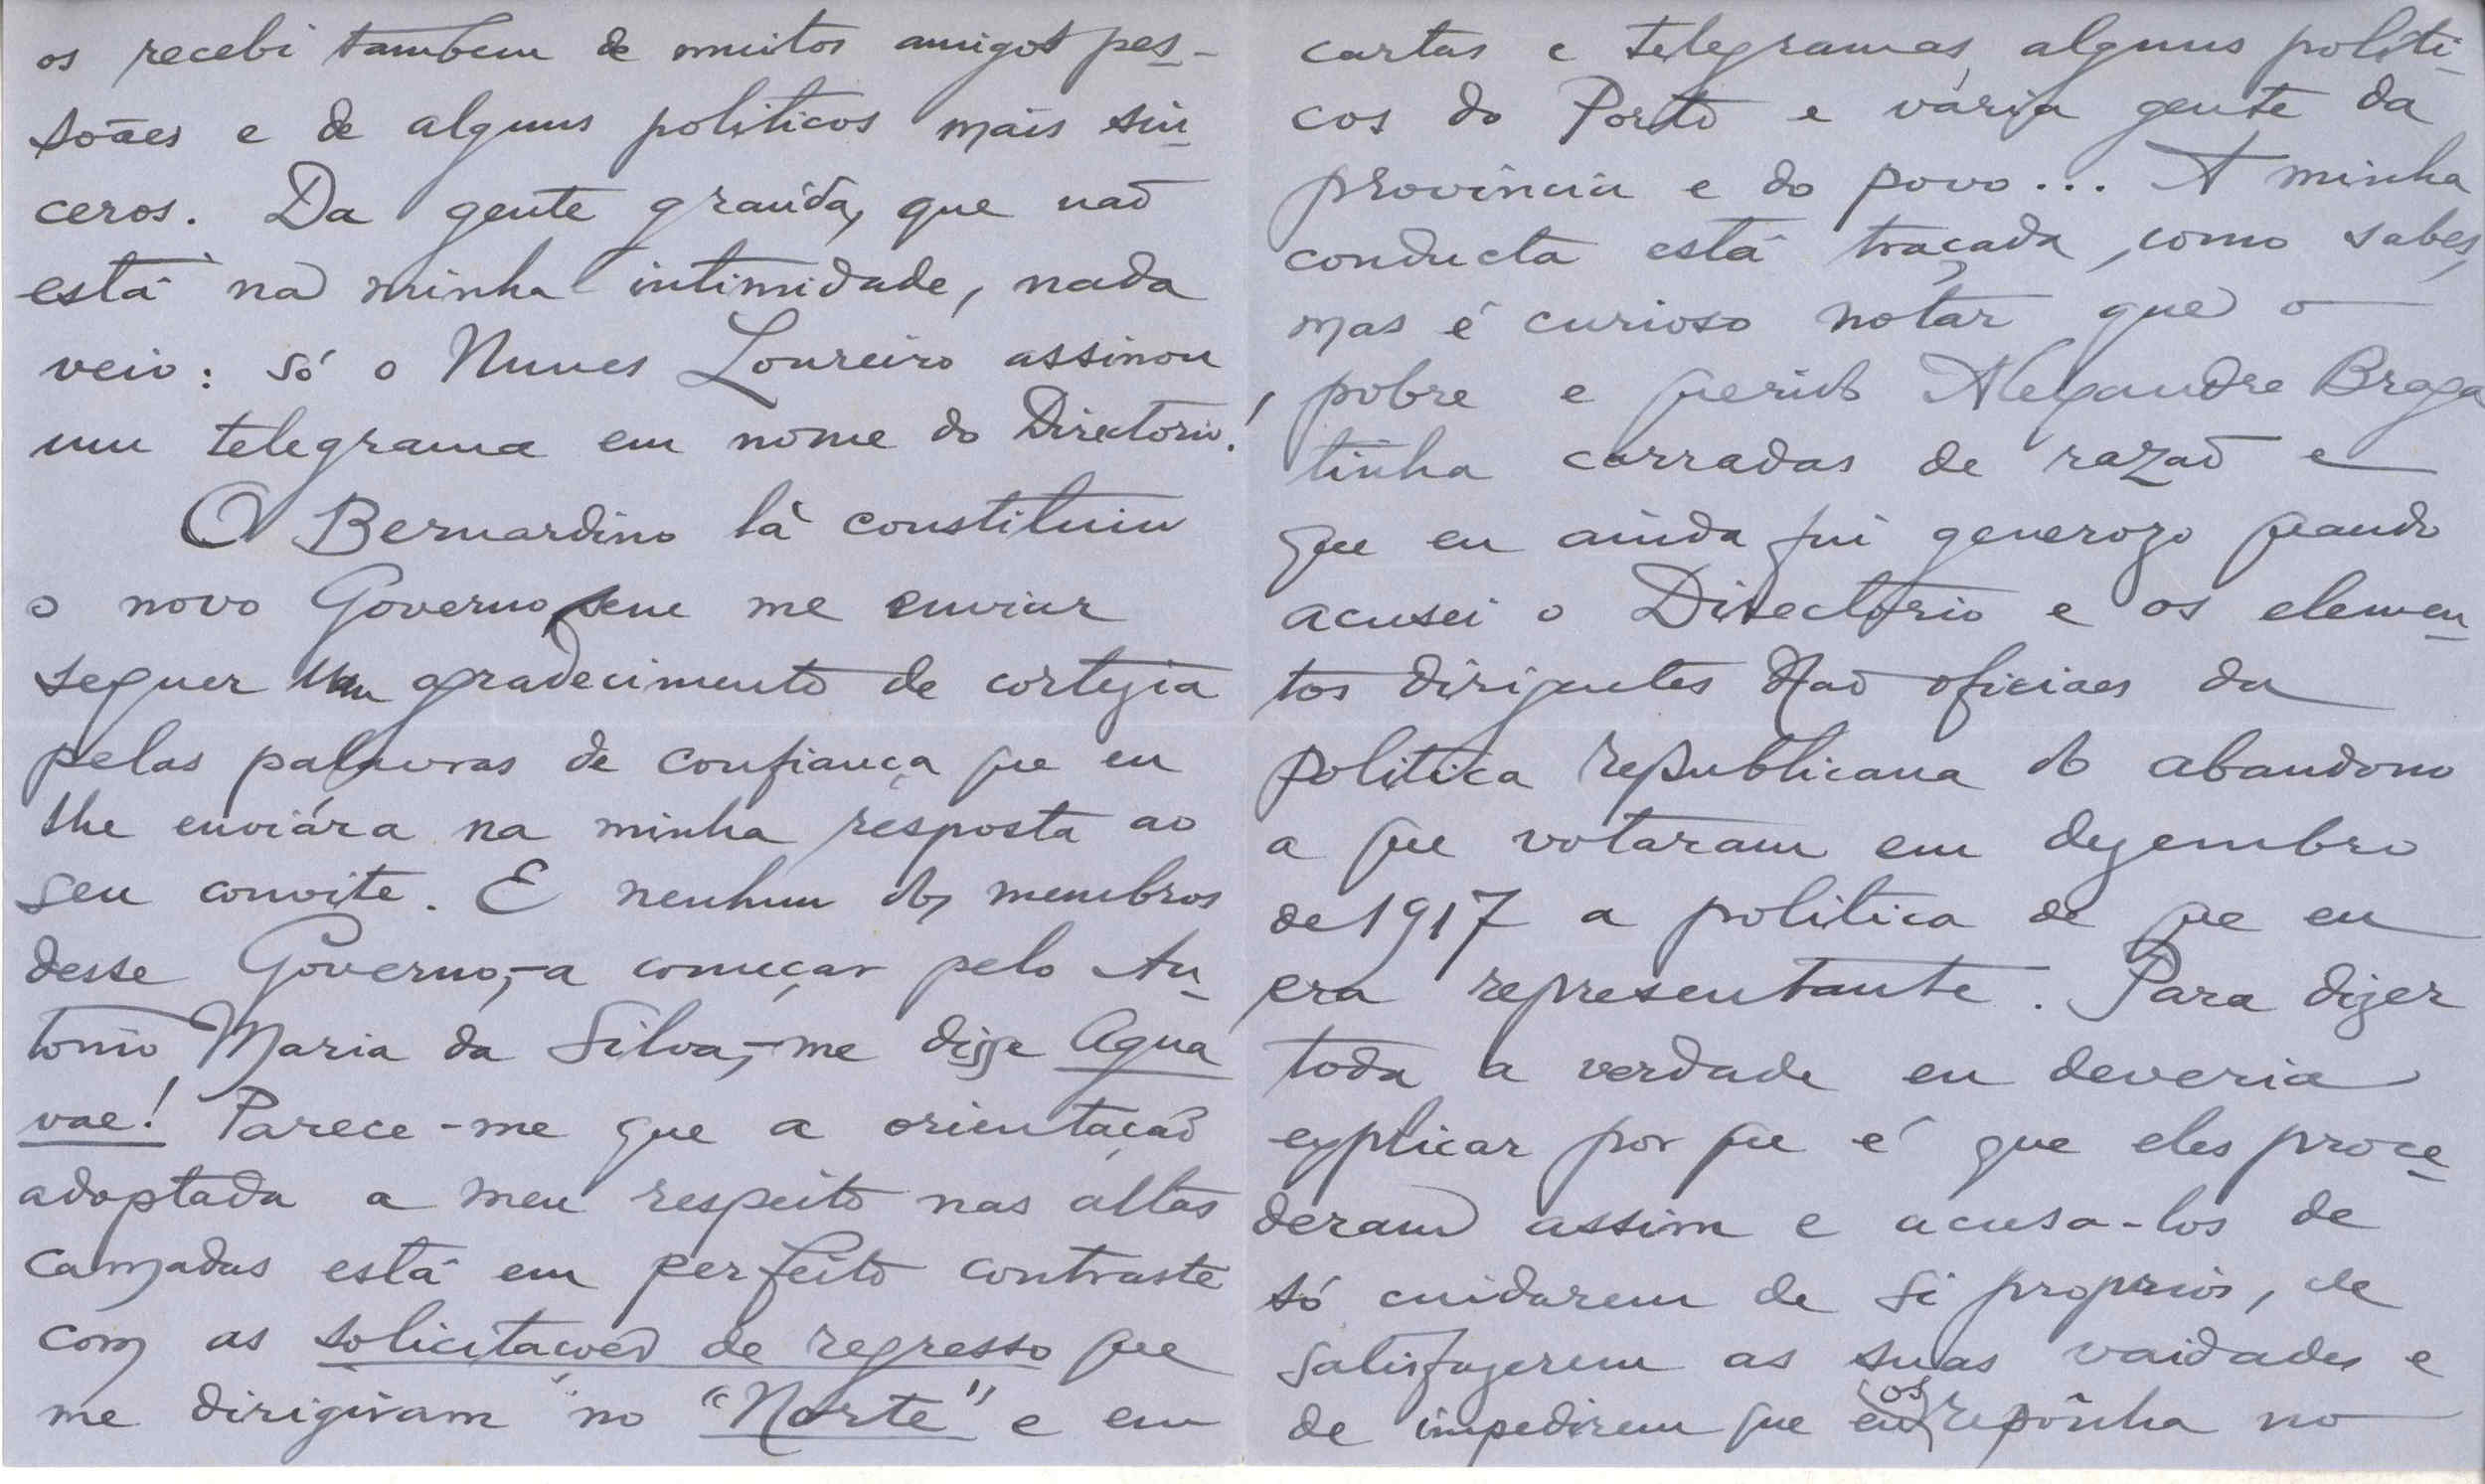 os recebi tambem de muitos amigos pes-
soães e de alguns politicos mais sin-
ceros. Da gente graúda, que naõ
está na minha intimidade, nada
veio: só o Nunes Loureiro assinou
um telegrama em nome do Directorio!
O Bernardino lá constituiu
o novo Governo, sem me enviar
sequer um agradecimento de cortezia
pelas palavras de confiança que eu
lhe enviára na minha resposta ao
seu convite. E nenhum dos membros
desse Governo,-a começar pelo An-
tonio Maria da Silva,-me disse Agua
vae! Parece-me que a orientaçaõ
adoptada a meu respeito nas altas
camadas está em perfeito contraste
com as solicitações de regresso que
me dirigiram no "Norte" e em
cartas e telegramas, alguns politi-
cos do Porto e vária gente da
provincia e do povo... A minha
conducta está traçada, como sabes,
mas é curioso notar que o
pobre e querido Alexandre Braga
tinha carradas de razaõ e
que eu ainda fui generozo quando
acusei o Directorio e os elemen-
tos dirigentes naõ oficiaes da
politica republicana do abandono
a que votaram em dezembro
de 1917 a politica de que eu
era representante. Para dizer
toda a verdade eu deveria
explicar por que é que eles proce-
deram assim e acusa-los de
só cuidarem de si proprios, de
satisfazerem as suas vaidades e
de impedirem que eu os reponha no